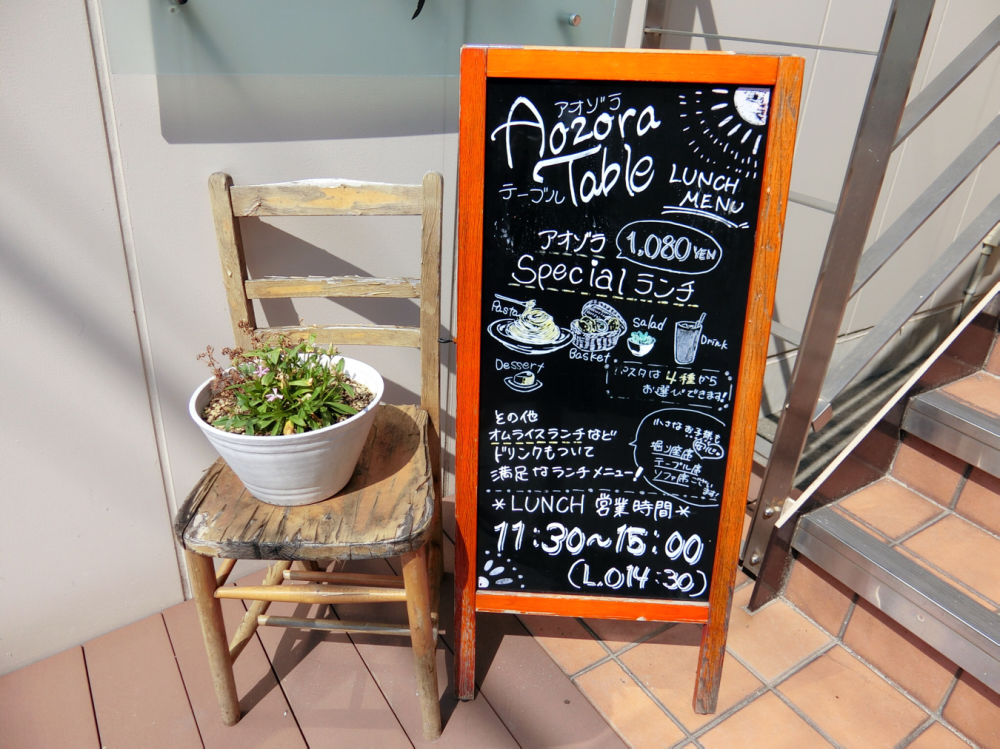 アオゾラ
Aozora
Table
テーブル
LUNCH
MENU
アオゾラ 1,080 YEN
Special ランチ
Pasta
Basket
Salad
Drink
Dessert
パスタは4種から
お選びできます!
その他
オムライスランチなど
ドリンクもついて
満足なランチメニュー!
小さなお子様も
安心
堀り座席
テーブル席
ソファ席ございます!
*LUNCH 営業時間*
11:30~15:00
(L.O14:30)